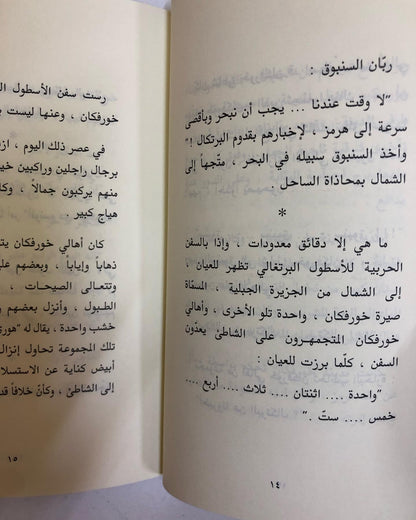 ربّان السنبوق :
"لا وقت عندنا ... يجب أن نبحر وبأقصى
سرعة إلى هرمز ، لإخبارهم بقدوم البرتكال !"
وأخذ السنبوق سبيله في البحر ، متّجهاً إلى
الشمال بمحاذاة الساحل .
*
ما هي إلا دقائق معدودات ، وإذا بالسفن
الحربية للأسطول البرتغالي تظهر للعيان ،
إلى الشمال من الجزيرة الجبلية ، المسمّاة
صيرة خورفكان ، واحدة تلو الأخرى ، وأهالي
خورفكان المتجمهرون على الشاطئ يعدّون
السفن ، كلّما برزت للعيان :
"واحدة .... اثنتان .... ثلاث .... أربع ....
خمس .... ستّ ."
١٤
رست سفن الأسطول
خورفكان ، وعنها ليست
في عصر ذلك اليوم ،
برجال راجلين وراكبين
منهم يركبون جمالاً ،
هياج كبير .
كان أهالي خورفكان
ذهاباً وإياباً ، وبعضهم
وتتعالى الصيحات ،
الطبول ، وأنزل بعضهم
خشب واحدة ، يقال له
تلك المجموعة تحاول إنزال
أبيض كناية عن
إلى الشاطئ ، وكأنّ خلافاً
١٥